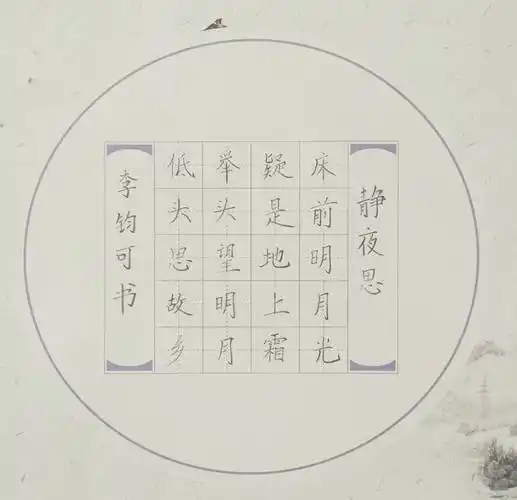 静夜思
床前明月光
疑是地上霜
举头望明月
低头思故乡
李钧可书